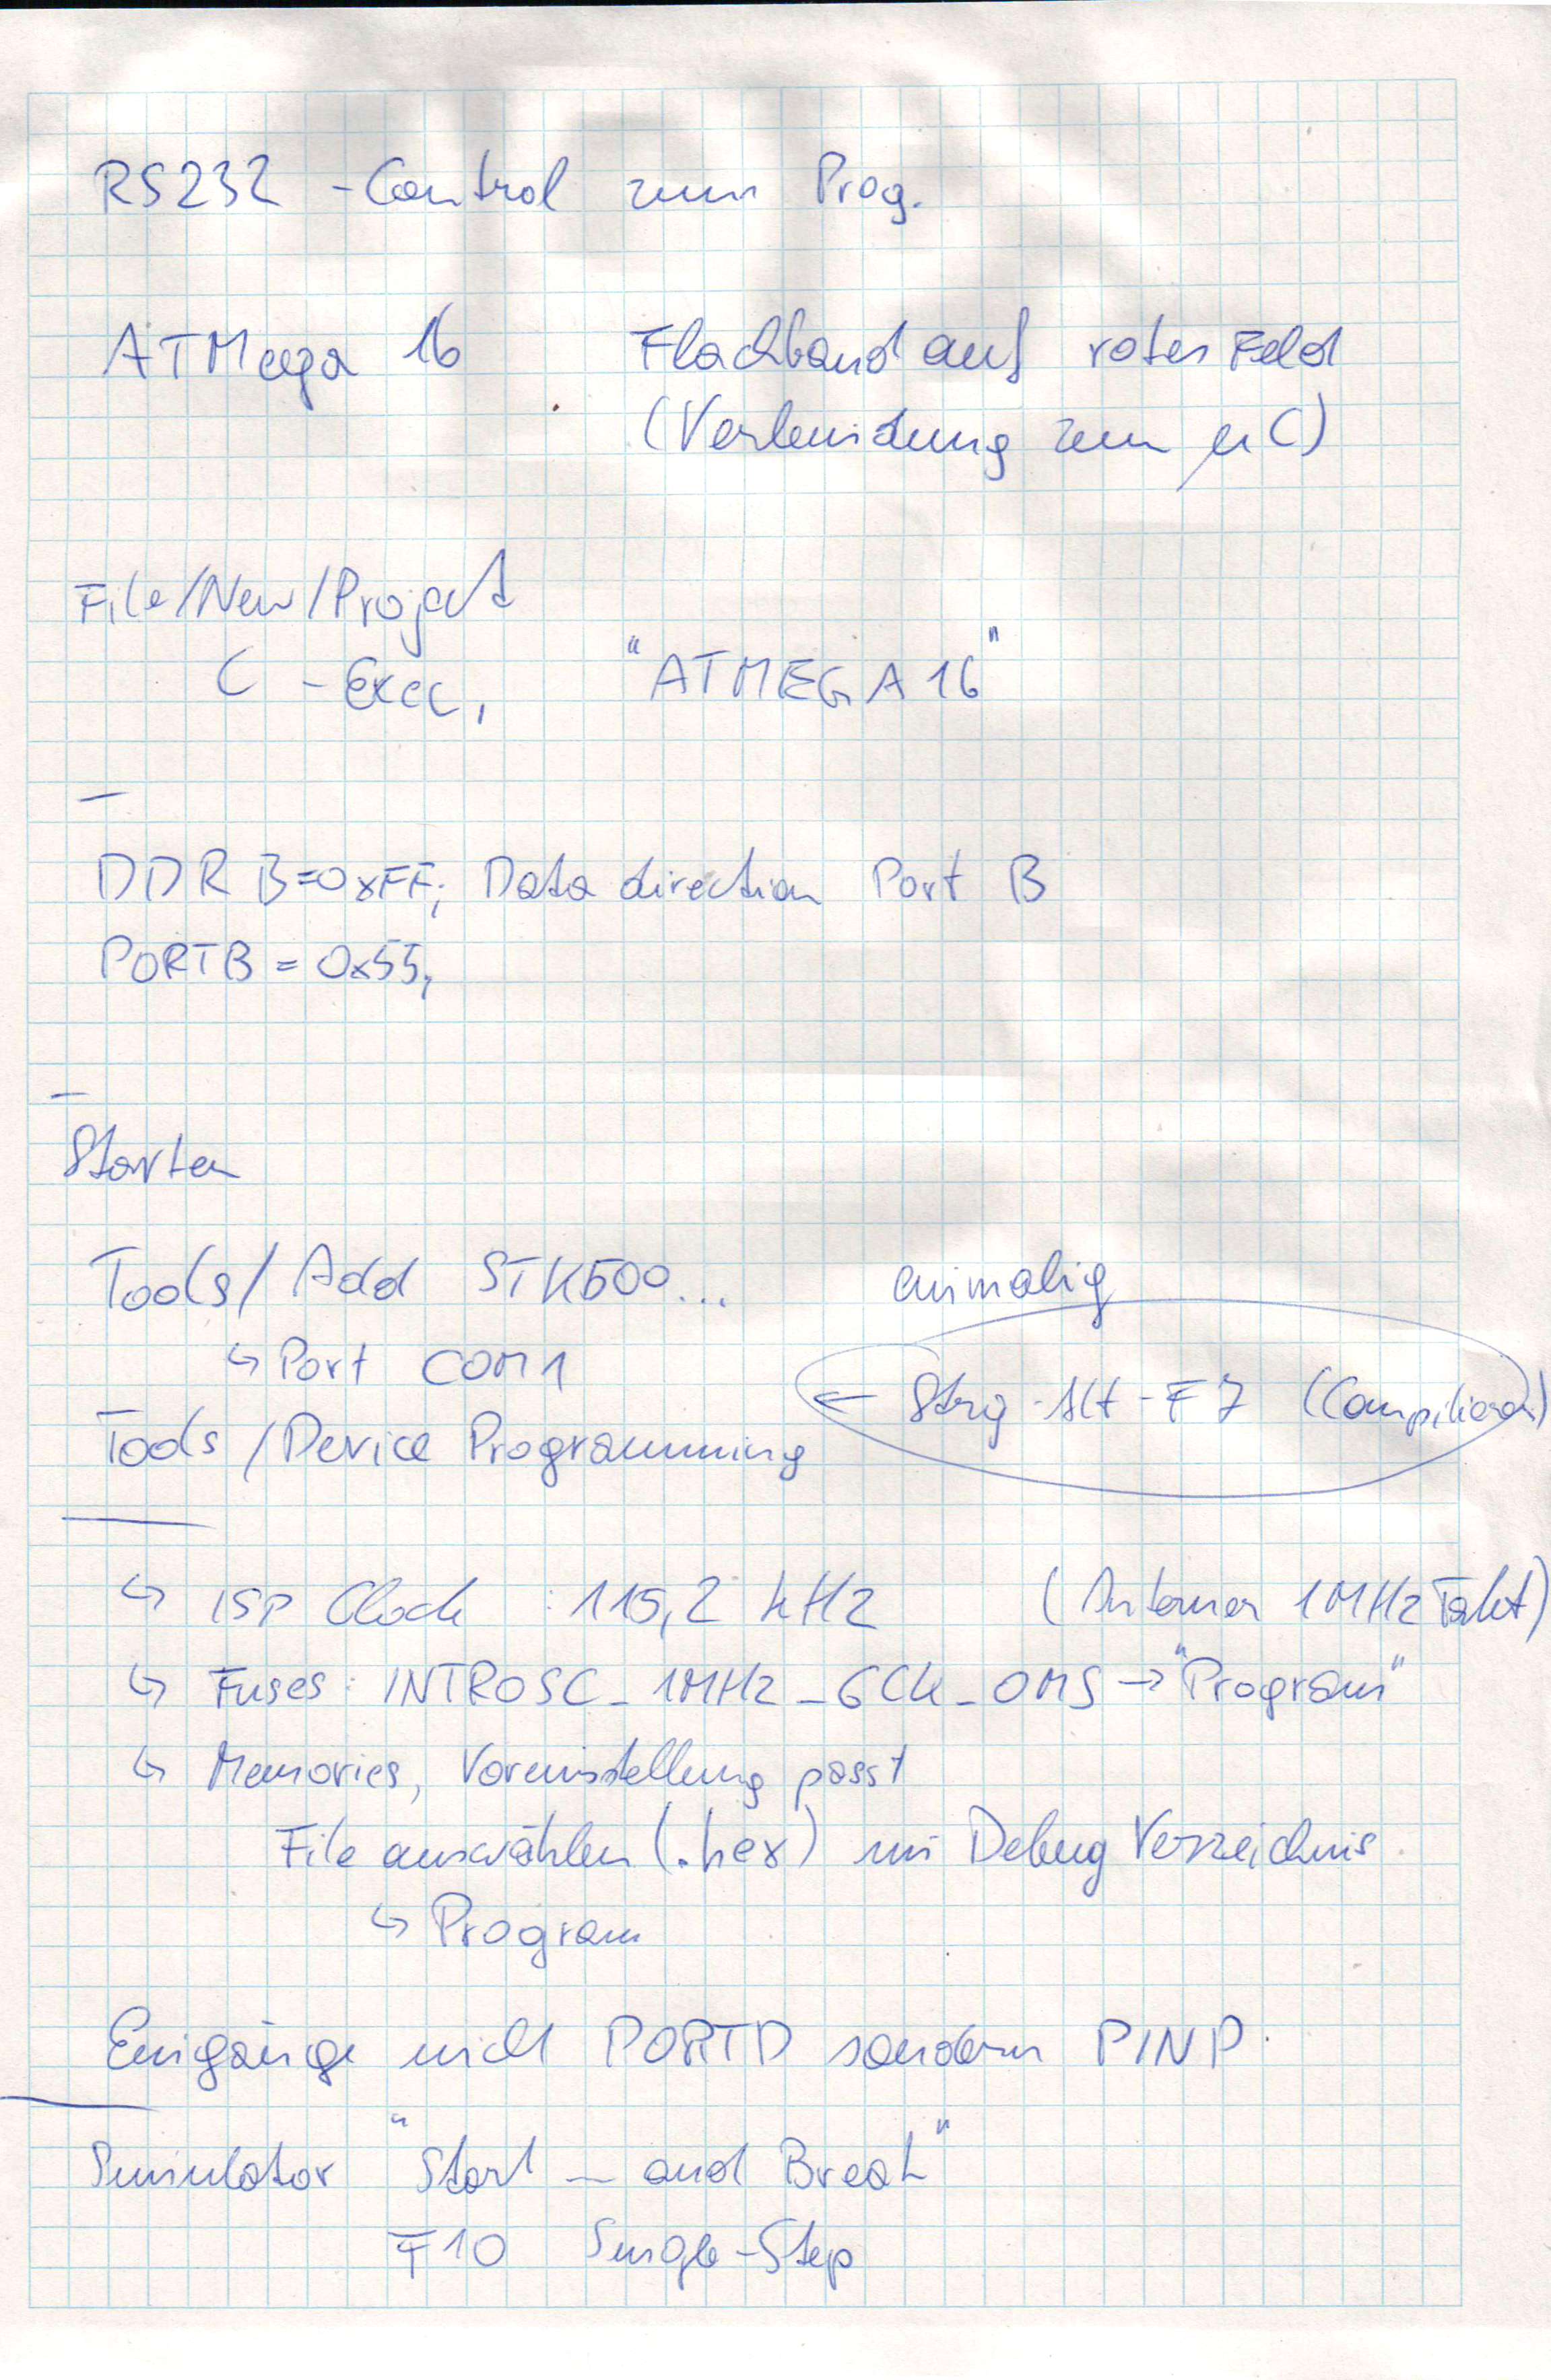 RS232 - Control zum Prog.
ATMega 16 Flachband auf rotes Feld
(Verbindung zum µC)
File/New/Project
C - Exec, "ATMEGA16"
–
DDRB=0xFF; Data direction Port B
PORTB = 0x55;
–
Starten
Tools/Add STK500... einmalig
↳ Port COM1
← Strg-Alt-F7 (Compilieren)
Tools/Device Programming
↳ ISP Clock : 115,2 kHz (Interner 1MHz Takt)
↳ Fuses: INTRCOSC_1MHz_6CK_0MS → "Program"
↳ Memories, Voreinstellung passt
File auswählen (.hex) im Debug Verzeichnis
↳ Program
Eingänge nicht PORTD sondern PIND.
Simulator "Start – and Break"
F10 Single-Step